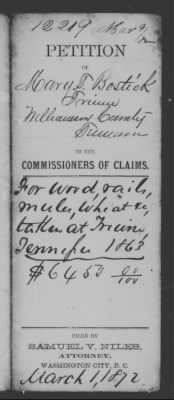 12219 Mar 9/72
PETITION
OF
Mary T. Bostick
Triune
Williamson County
Tennessee
TO THE
COMMISSIONERS OF CLAIMS.
For wood, rails,
mules, wheat &c,
taken at Triune
1863
$6450 00/100
FILED BY
SAMUEL V. NILES,
ATTORNEY,
WASHINGTON CITY, D. C.
March 1, 1872